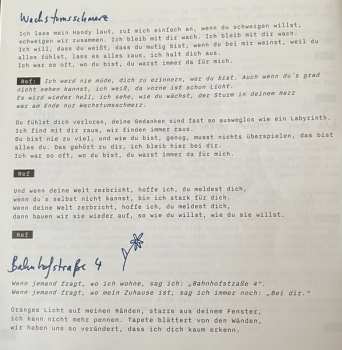 Wachstumsschmerz
Ich lass mein Handy laut, ruf mich einfach an, wenn du schweigen willst,
schweigen wir zusammen. Ich bleib mit dir wach. Ich bleib mit dir wach.
Ich will, dass du weißt, dass du mutig bist, wenn du bei mir weinst, weil du
alles fühlst, lass es alles raus, ich halt dich aus.
Ich war so oft, wo du bist, du warst immer da für mich.
Ref: Ich werd nie müde, dich zu erinnern, wer du bist. Auch wenn du's grad
nicht sehen kannst, ich weiß, da vorne ist schon Licht.
Es wird wieder hell, ich sehe, wie du wächst, der Sturm in deinem Herz
war am Ende nur Wachstumsschmerz.
Du fühlst dich verloren, deine Gedanken sind fast so ausweglos wie ein Labyrinth.
Ich find mit dir raus, wir finden immer raus.
Du bist nie zu viel, und wie du bist, genug, musst nichts überspielen, das bist
alles du. Das gehört zu dir, ich bleib hier bei dir.
Ich war so oft, wo du bist, du warst immer da für mich.
Ref
Und wenn deine Welt zerbricht, hoffe ich, du meldest dich,
wenn du's selbst nicht kannst, bin ich stark für dich.
Wenn deine Welt zerbricht, hoffe ich, du meldest dich,
dann bauen wir sie wieder auf, so wie du willst, wie du sie willst.
Ref
Bahnhofstraße 4
Wenn jemand fragt, wo ich wohne, sag ich: „Bahnhofstraße 4“.
Wenn jemand fragt, wo mein Zuhause ist, sag ich immer noch: „Bei dir.“
Oranges Licht auf meinen Händen, starre aus deinem Fenster,
ich kann nicht mehr pennen. Tapete blättert von den Wänden,
wir haben uns so verändert, dass ich dich kaum erkenn.